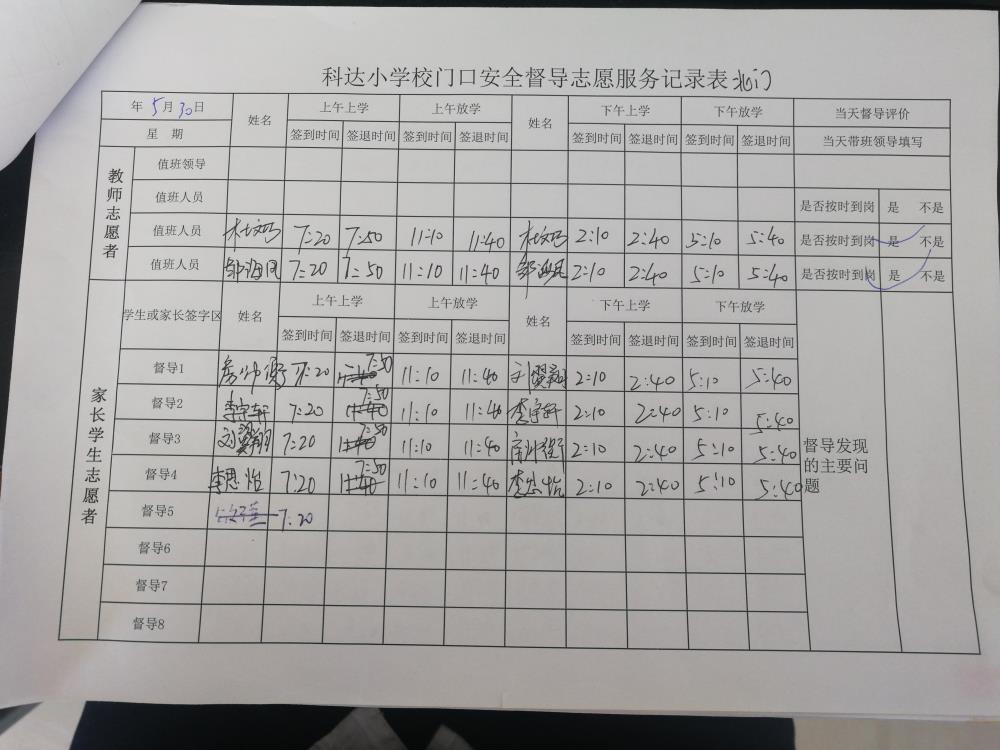 科达小学校门口安全督导志愿服务记录表 北门
年 5月30日 姓名 上午上学 上午放学 姓名 下午上学 下午放学 当天督导评价
星 期 签到时间 签退时间 签到时间 签退时间 签到时间 签退时间 签到时间 签退时间 当天带班领导填写
教师志愿者
值班领导
值班人员 是否按时到岗 是 不是
值班人员 7:20 7:50 11:10 11:40 2:10 2:40 5:10 5:40 是否按时到岗 是 不是
值班人员 7:20 7:50 11:10 11:40 2:10 2:40 5:10 5:40 是否按时到岗 是 不是
家长学生志愿者
学生或家长签字区 姓名 上午上学 上午放学 姓名 下午上学 下午放学
签到时间 签退时间 签到时间 签退时间 签到时间 签退时间 签到时间 签退时间
督导1 7:20 7:50 11:10 11:40 2:10 2:40 5:10 5:40
督导2 李宗轩 7:20 7:50 11:10 11:40 李宗轩 2:10 2:40 5:10 5:40
督导3 7:20 7:50 11:10 11:40 2:10 2:40 5:10 5:40
督导4 李思怡 7:20 7:50 11:10 11:40 李思怡 2:10 2:40 5:10 5:40
督导5 7:20
督导6
督导7
督导8
督导发现
的主要问
题